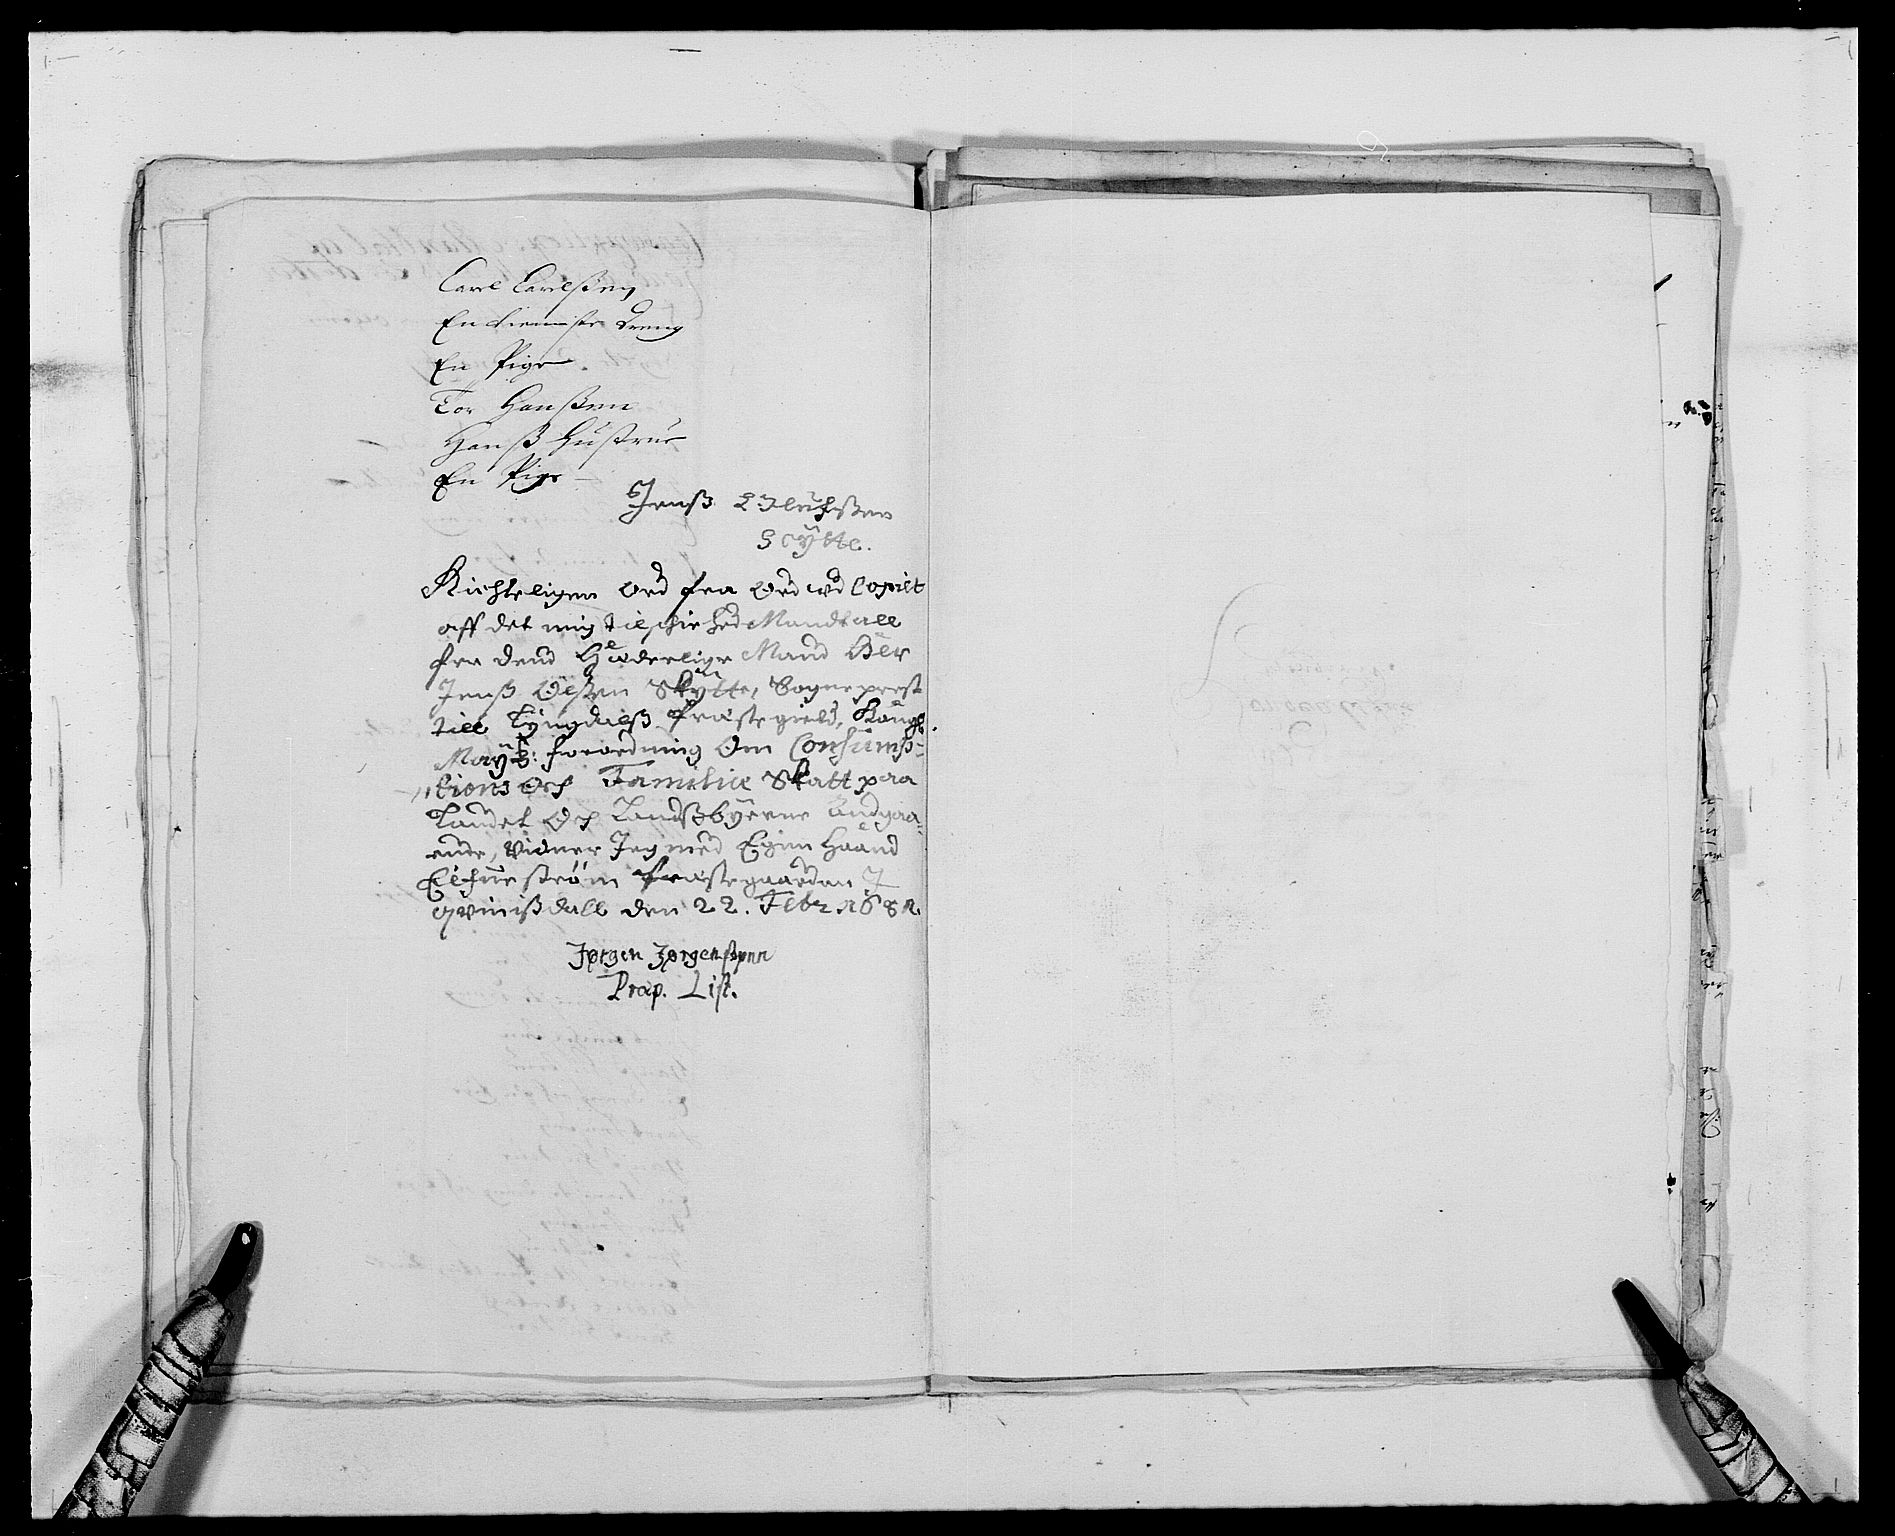 Carl Carlßen
En tienniste dreng
En Pige
Tor Hanßen
Hanß Hustrue
En Pige
Jenß Olufßen
Scÿtte.
Richteligen ord fra ord ud Copiert
aff det mig tilschichede Mandtall
fra dend Hæderlige Mand Hr
Jenß Olßen Skÿtte, Sogneprest
till Lÿngdalß Præstegield, Kongl.
Mayts: forordning Om Consump=
tions och Familie Skatt paa
Landet och Landßbÿerne Andgaa=
ende, vidner Jeg med Egen Haand
præstegaarden J
qvinißdall den 22. Febr 1682.
Jørgen Jørgensønn
Præp. List.